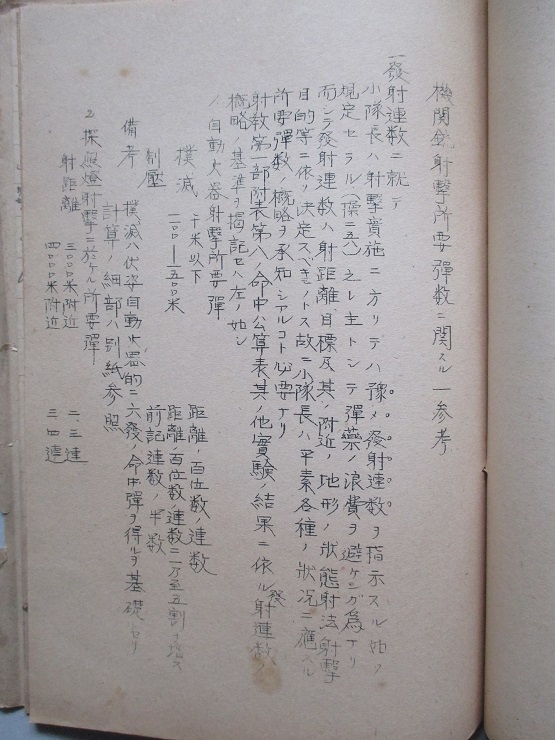 機関銃射撃所要彈数ニ関スル一参考
一發射連数ニ就テ
小隊長ハ射撃実施ニ方リテハ豫メ發射連数ヲ指示スル如ク
規定セラル(操二五八)之レ主トシテ彈藥ノ浪費ヲ避ケンガ為ナリ
而シテ發射連数ハ射距離、目標及其ノ附近ノ地形ノ狀態射法射撃
目的等ニ依リ決定スベキモノトス故ニ小隊長ハ平素各種ノ狀況ニ應スル
所要彈数ノ概略ヲ承知シアルコト必要ナリ
射教第一部附表第八、命中公算表其ノ他實験ノ結果ニ依ル發射連数ノ
概略ノ基準ヲ掲記セハ左ノ如シ
1 自動火器射撃所要彈
撲滅 千米以下 距離ノ百位数ノ連数
一一〇〇―一五〇〇米 距離ノ百位数ノ連数ニ一乃至五割ヲ増ス
制壓 前記連数ノ半数
備考 撲滅ハ伏姿自動火器的ニ六發ノ命中彈ヲ得ルヲ基礎トセリ
計算ノ細部ハ別紙参照
2 探照燈射撃ニ於ケル所要彈
射距離 三〇〇〇米附近 二、三連
四〇〇〇米附近 三、四連